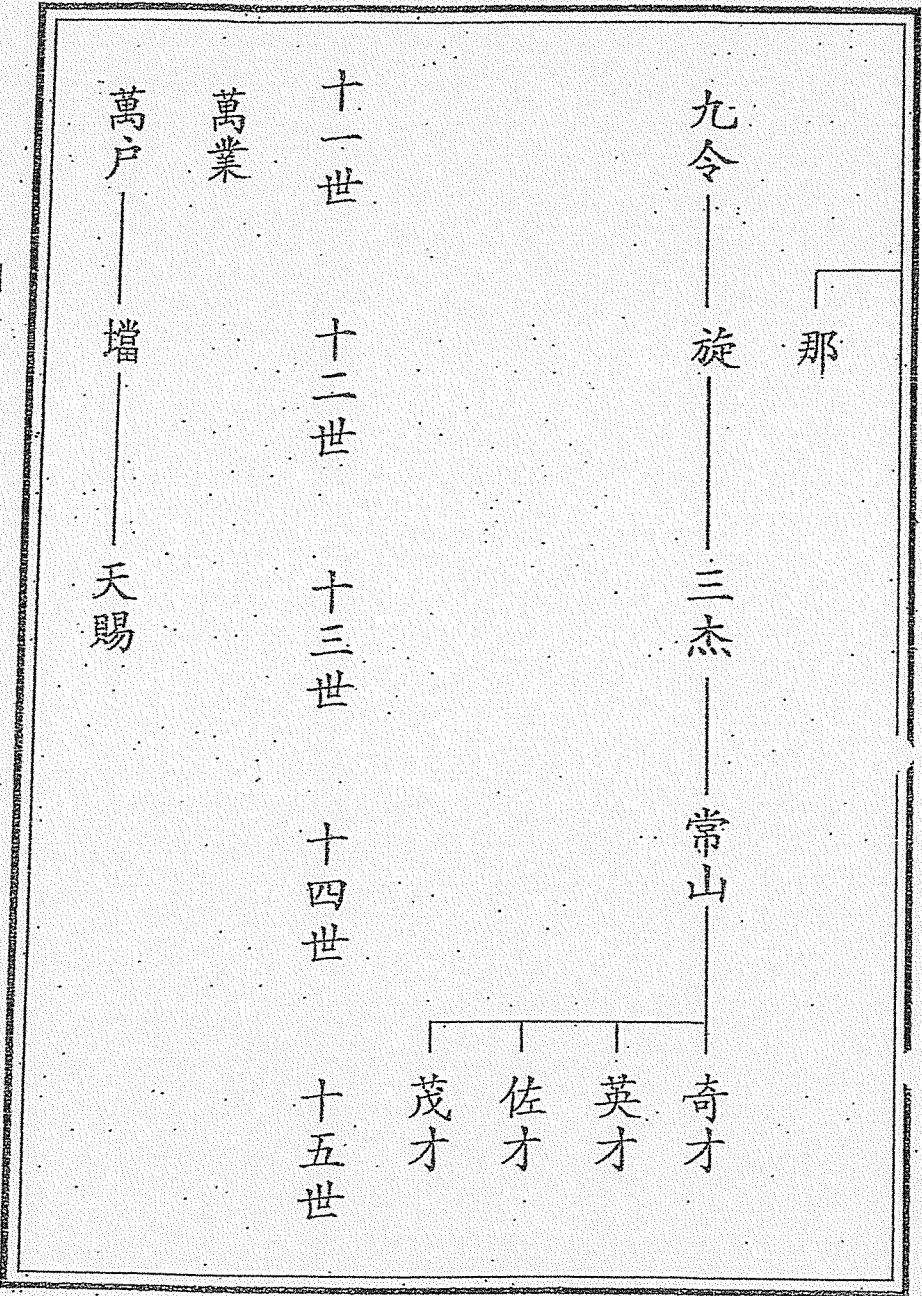 那
九令 旋 三杰 常山 奇才
英才
佐才
茂才
十一世 十二世 十三世 十四世 十五世
萬業
萬户 壋 天賜